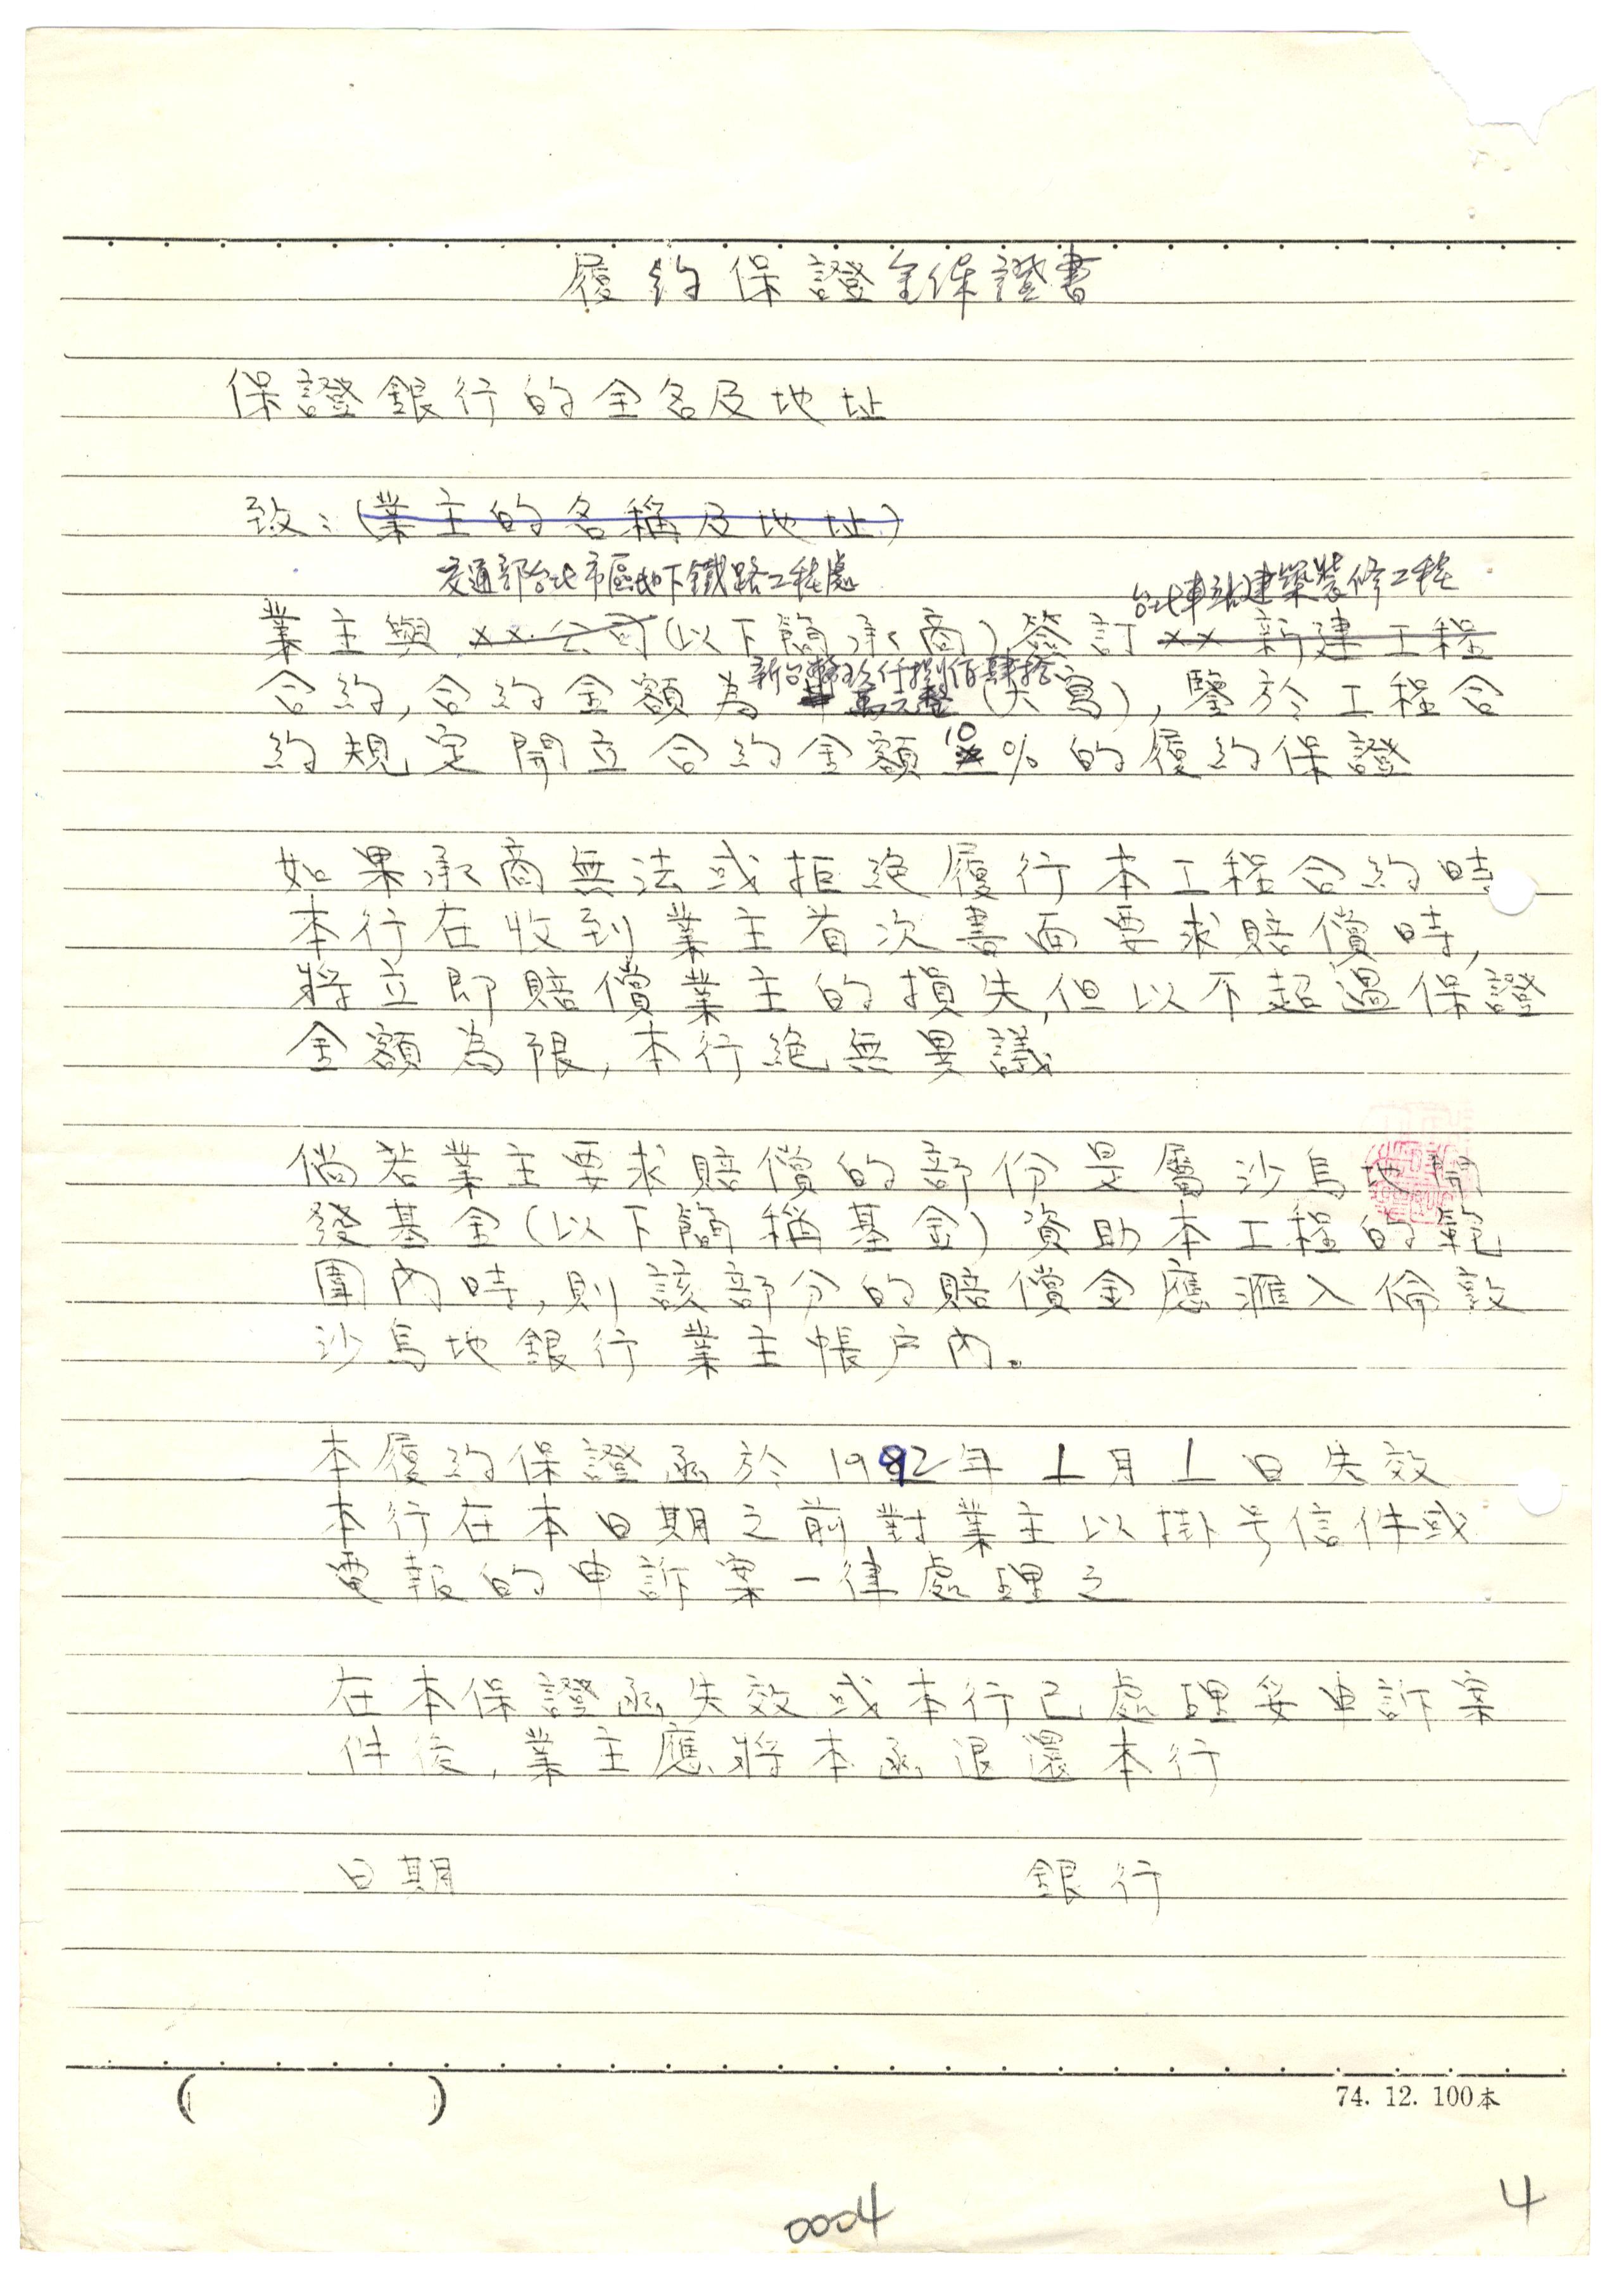 履約保證金保證書
保證銀行的全名及地址
致：(業主的名稱及地址)
交通部台北市區地下鐵路工程處
台北車站建築裝修工程
業主與 ×× 公司(以下簡承商)簽訂 ×× 新建工程
新台幣玖仟捌佰肆拾
合約,合約金額為 萬元整 (大寫),鑒於工程合
10
約規定開立合約金額 % 的履約保證
如果承商無法或拒絕履行本工程合約時
本行在收到業主首次書面要求賠償時,
將立即賠償業主的損失,但以不超過保證
金額為限,本行絕無異議
倘若業主要求賠償的部份是屬沙烏地開
發基金(以下簡稱基金)資助本工程的範
圍內時,則該部分的賠償金應滙入倫敦
沙烏地銀行業主帳户內。
本履約保證函於 1992年 1月 1日失效
本行在本日期之前對業主以掛号信件或
電報的申訴案一律處理之
在本保證函失效或本行已處理妥申訴案
件後,業主應將本函退還本行
日期 銀行
( ) 74. 12. 100本
0004
4